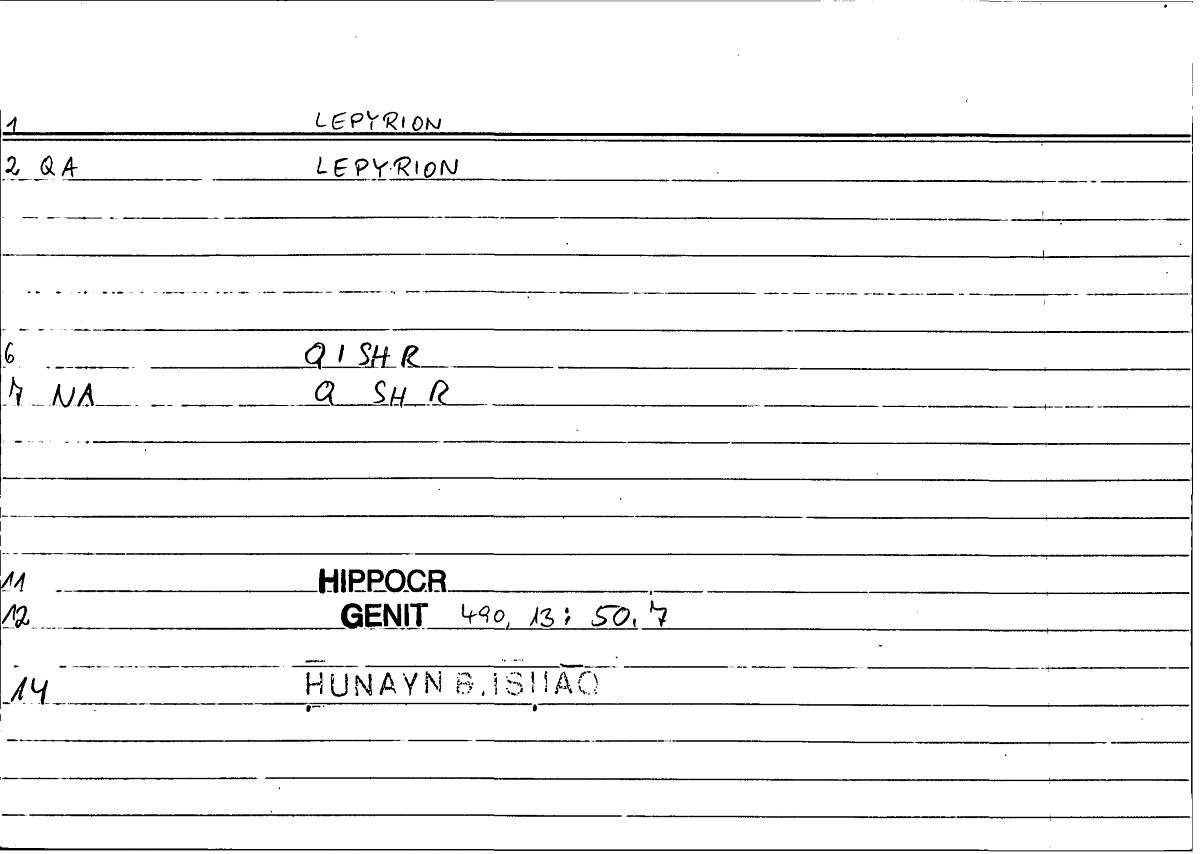 1 LEPYRION
2 QA LEPYRION
6 QISHR
7 NA Q SH R
11 HIPPOCR
12 GENIT 490, 13 ; 50, 7
14 ḤUNAYN B. ISḤĀQ